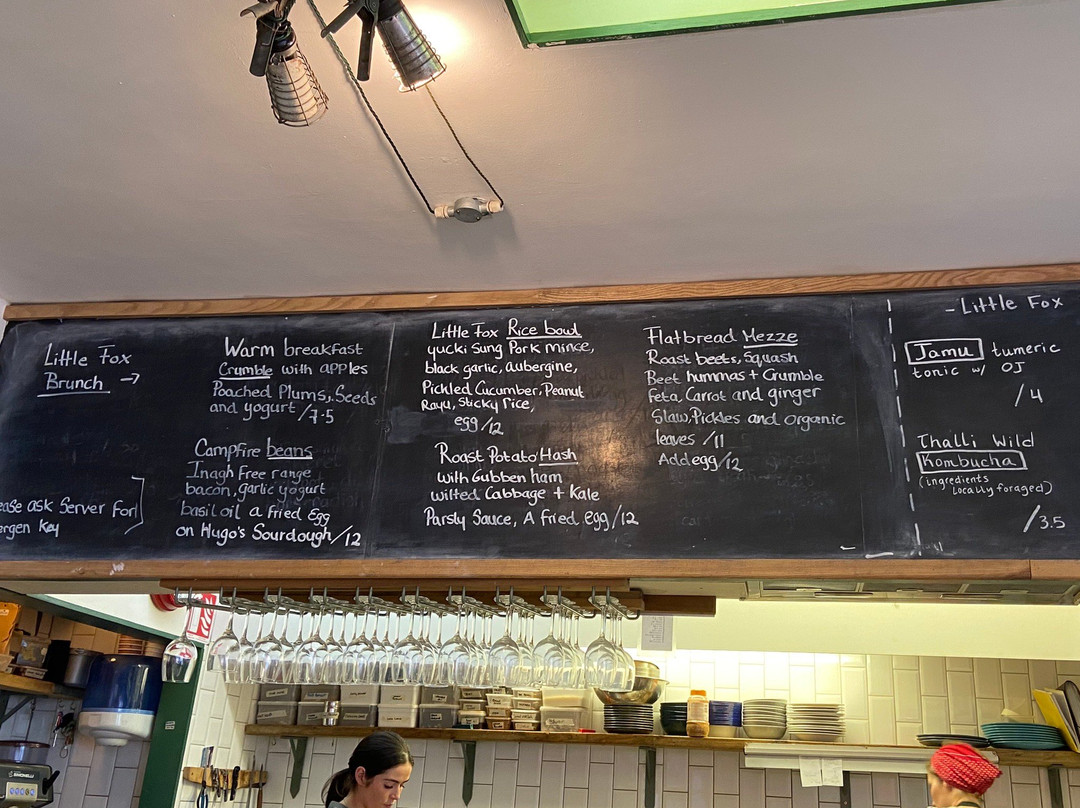 Little Fox
Brunch →
ease ask Server For
ergen Key
Warm breakfast
Crumble with apples
Poached Plums, Seeds
and yogurt /7.5
Campfire beans
Inagh Free range
bacon, garlic yogurt
basil oil a fried Egg
on Hugo's Sourdough /12
Little Fox Rice bowl
yucki Sung Pork mince,
black garlic, aubergine,
Pickled Cucumber, Peanut
Rayu, Sticky rice,
egg /12
Roast Potato Hash
with Gubben ham
wilted Cabbage + Kale
Parsly Sauce, A fried egg /12
Flatbread Mezze
Roast beets, Squash
Beet hummas + Crumble
feta, Carrot and ginger
Slaw, Pickles and organic
leaves /11
Add egg /12
- Little Fox
Jamu tumeric
tonic w/ OJ
/4
Thalli Wild
Kombucha
(ingredients
Locally foraged)
/3.5